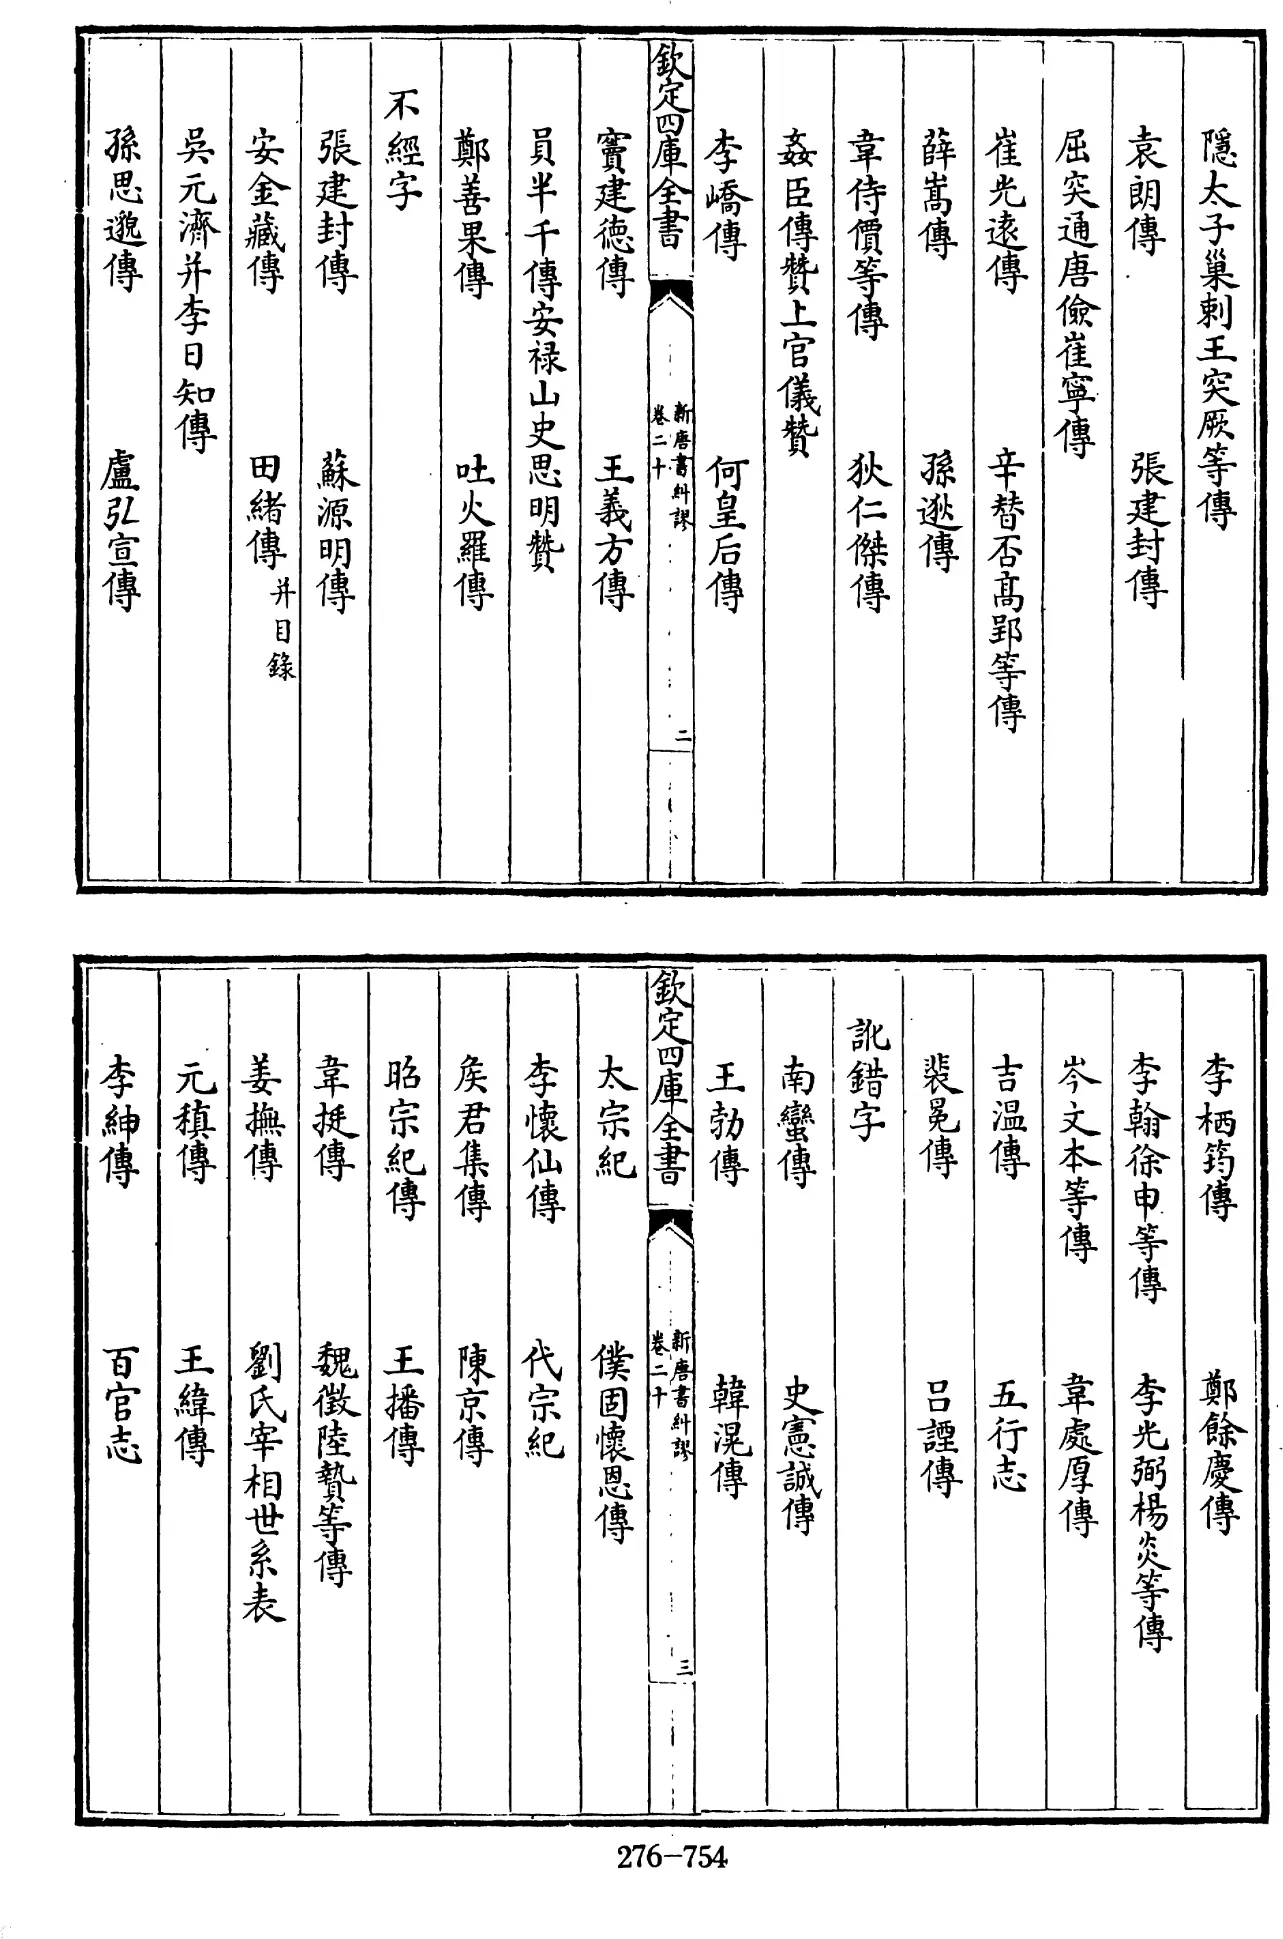 隱太子巢剌王突厥等傳
袁朗傳　張建封傳
屈突通唐儉崔寧傳
崔光遠傳　辛替否高郢等傳
薛嵩傳　孫逖傳
韋待價等傳　狄仁傑傳
姦臣傳贊上官儀贊
李嶠傳　何皇后傳
欽定四庫全書　新唐書糾謬卷二十　二
竇建德傳　王義方傳
員半千傳安禄山史思明贊
鄭善果傳　吐火羅傳
不經字
張建封傳　蘇源明傳
安金藏傳　田緒傳并目錄
吳元濟并李日知傳
孫思邈傳　盧弘宣傳
李栖筠傳　鄭餘慶傳
李翰徐申等傳　李光弼楊炎等傳
岑文本等傳　韋處厚傳
吉溫傳　五行志
裴冕傳　吕諲傳
訛錯字
南蠻傳　史憲誠傳
王勃傳　韓滉傳
欽定四庫全書　新唐書糾謬卷二十　三
太宗紀　僕固懷恩傳
李懷仙傳　代宗紀
侯君集傳　陳京傳
昭宗紀傳　王播傳
韋挺傳　魏徵陸贄等傳
姜撫傳　劉氏宰相世系表
元稹傳　王緯傳
李紳傳　百官志
276-754